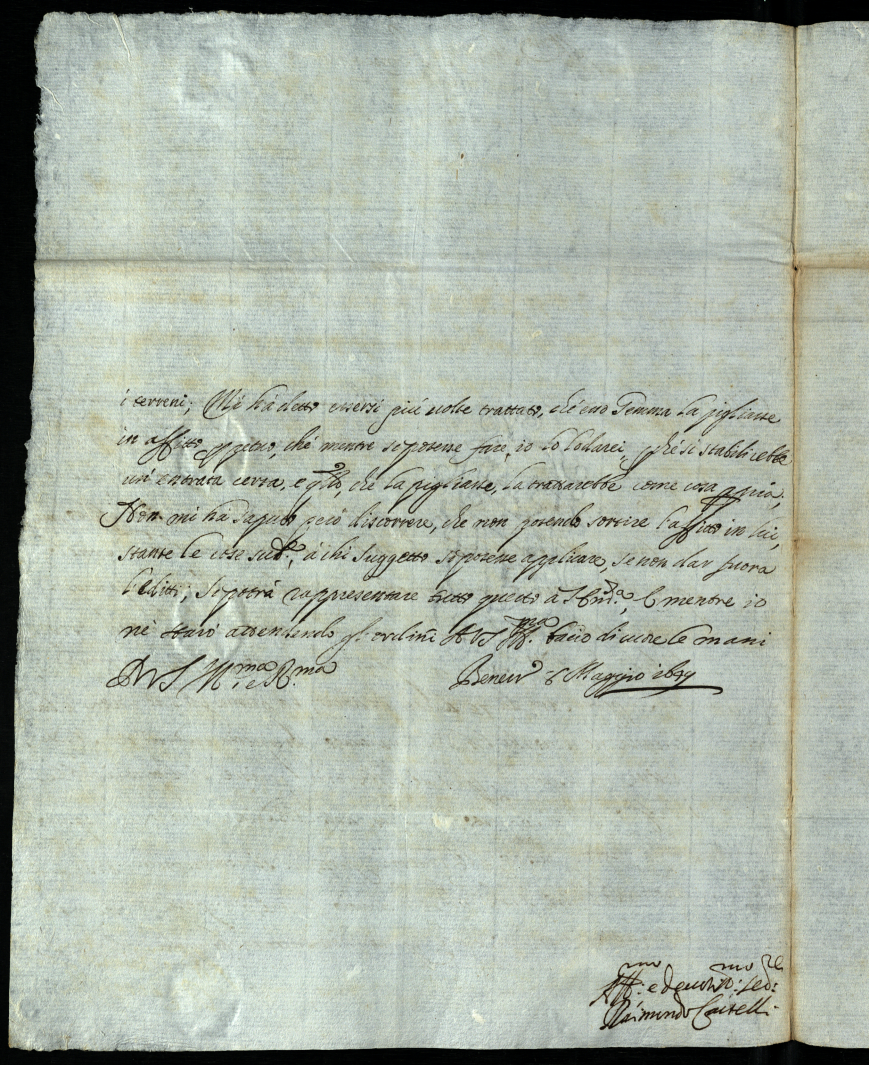 i terreni; Mi hà detto essersi più volte trattato, che esso Temma la pigliasse
in affitto che mentre si potesse fare, io lo lodarei, chè si stabilirebbe
un'entrata certa, e che la pigliasse, la trattarebbe come cosa ppria,
Non mi hà saputo però discorrere, che non potendo sortire l'affitto in lui,
stante le cose sud.e, à chi suggetto si potesse applicare, se non dar fuora
l'Editti; si potrà rappresentare tutto questo à mentre io
nè starò attendendo gl'ordini A VS Ill.ma bacio di cuore le mani
D VS Ill.ma e R.ma Benev.to Maggio
Aff.mo e devotis.mo Ser.re
Raimondo Castelli